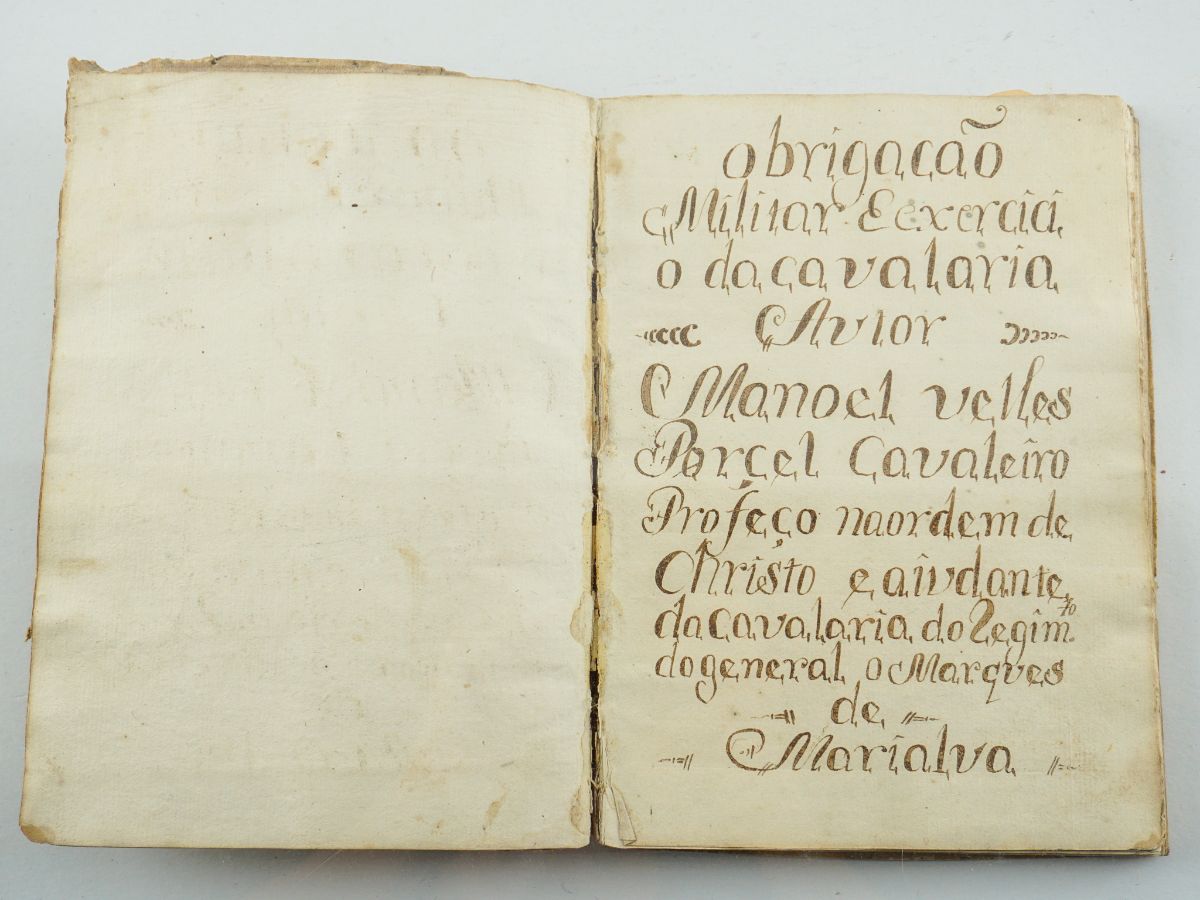 obrigação
Militar Eexercici
o dacavalaria
Autor
Manoel velles
Porcel Cavaleiro
Profeço naordem de
Christo e aiudante
dacavalaria do Regim.to
dogeneral o Marques
de
Marialva